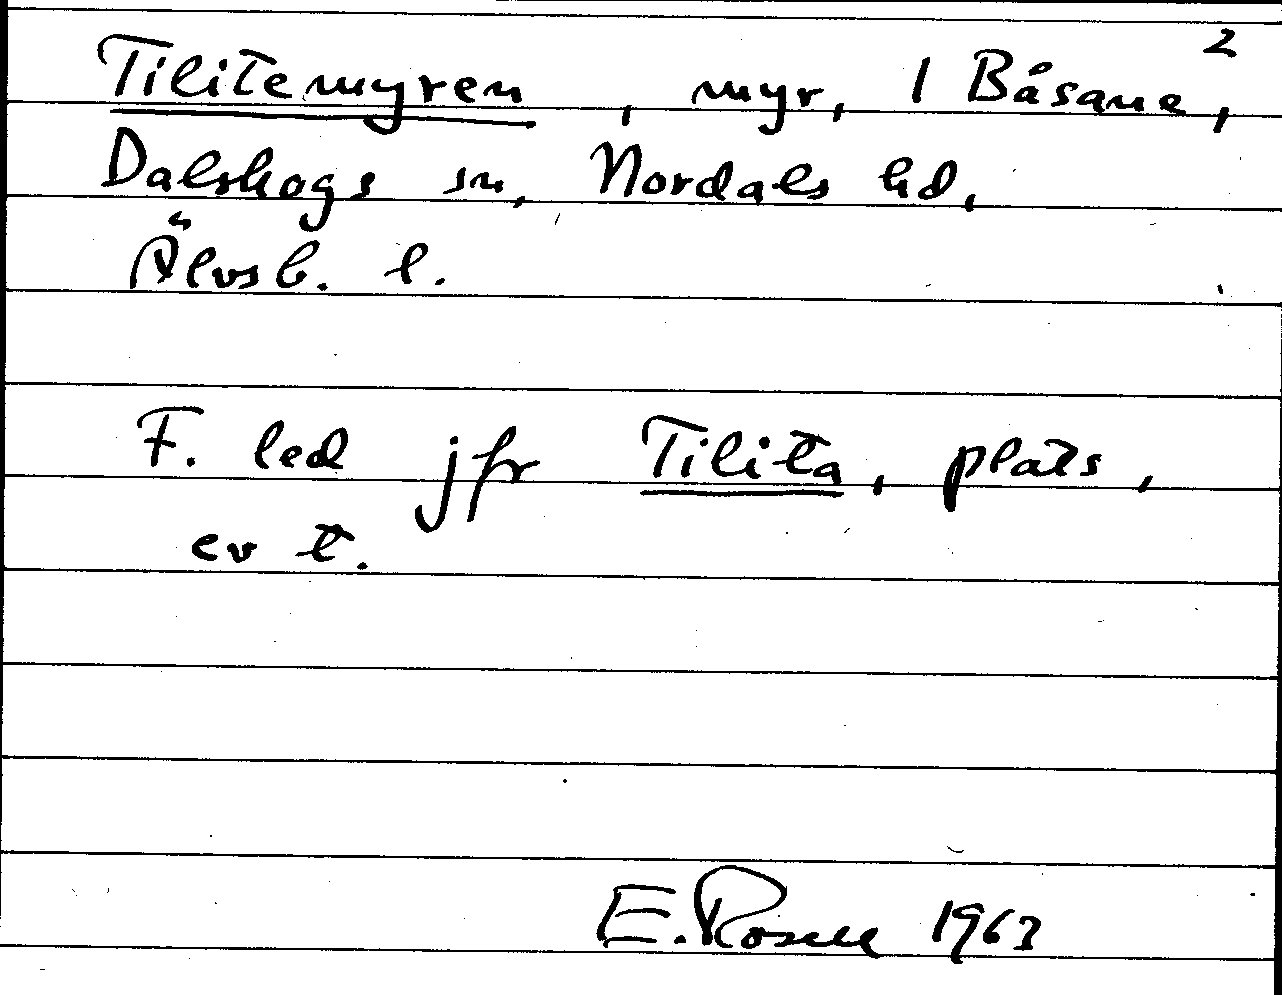 Tilitemyren, myr, 1 Båsane, 2
Dalskogs sn, Nordals hd,
Älvsb. l.
F. led jfr Tilita, plats,
ev t.
E. Rosell 1963